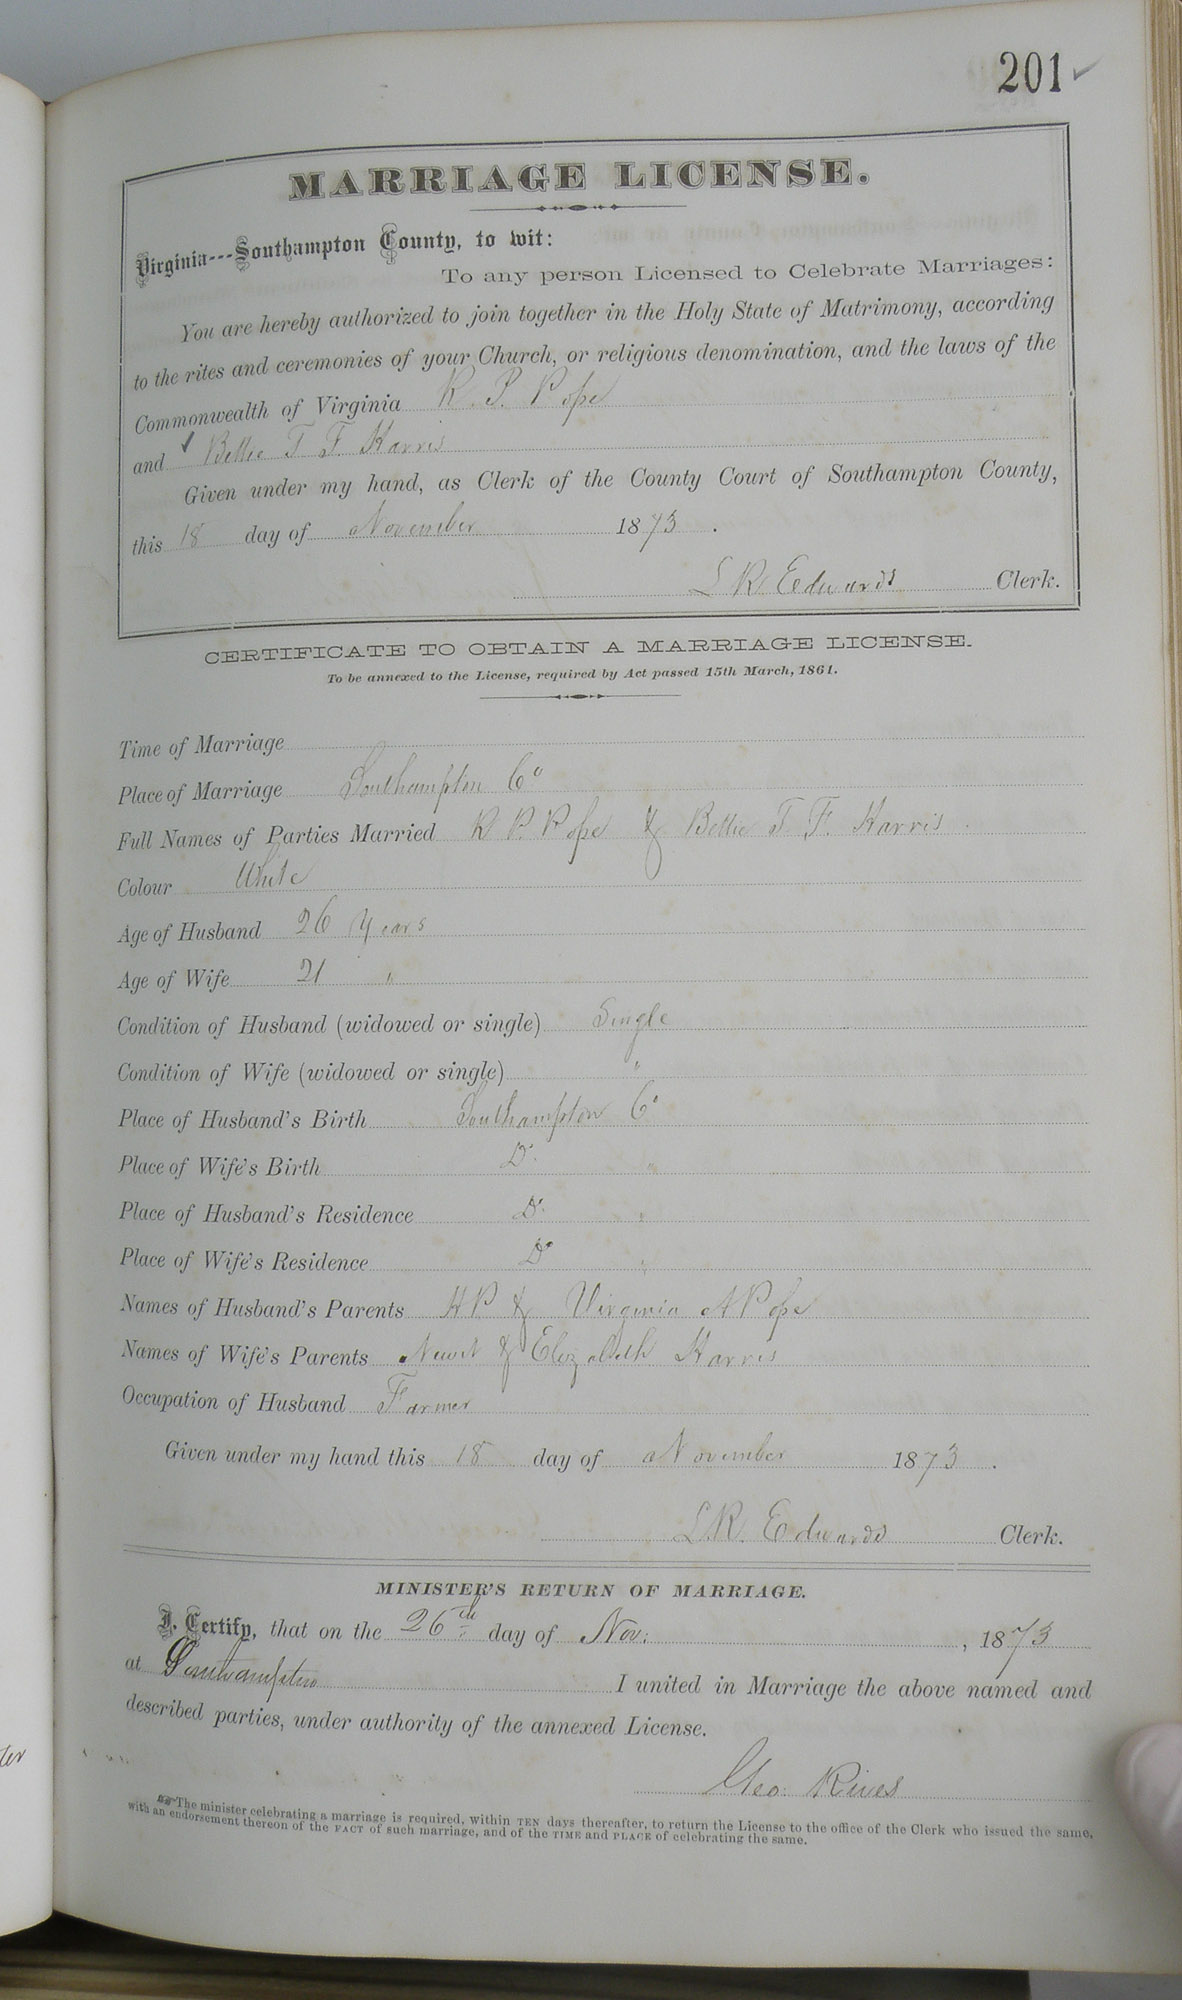 201
MARRIAGE LICENSE.
Virginia---Southampton County, to wit:
To any person Licensed to Celebrate Marriages:
You are hereby authorized to join together in the Holy State of Matrimony, according
to the rites and ceremonies of your Church, or religious denomination, and the laws of the
Commonwealth of Virginia R. P. Pope
and Bettie T F. Harris
Given under my hand, as Clerk of the County Court of Southampton County,
this 18 day of November 1873.
L R Edwards Clerk.
CERTIFICATE TO OBTAIN A MARRIAGE LICENSE.
To be annexed to the License, required by Act passed 15th March, 1861.
Time of Marriage
Place of Marriage Southampton Co
Full Names of Parties Married R P. Pope & Bettie T. F. Harris
Colour White
Age of Husband 26 Years
Age of Wife 21 "
Condition of Husband (widowed or single) Single
Condition of Wife (widowed or single) "
Place of Husband's Birth Southampton Co
Place of Wife's Birth Do "
Place of Husband's Residence Do "
Place of Wife's Residence Do "
Names of Husband's Parents H P. & Virginia A Pope
Names of Wife's Parents Newit & Elizabeth Harris
Occupation of Husband Farmer
Given under my hand this 18 day of November 1873.
L. R. Edwards Clerk.
MINISTER'S RETURN OF MARRIAGE.
I, Certify, that on the 26th day of Nov: , 1873
at Southampton I united in Marriage the above named and
described parties, under authority of the annexed License.
Geo. Rives
The minister celebrating a marriage is required, within TEN days thereafter, to return the License to the office of the Clerk who issued the same,
with an endorsement thereon of the FACT of such marriage, and of the TIME and PLACE of celebrating the same.